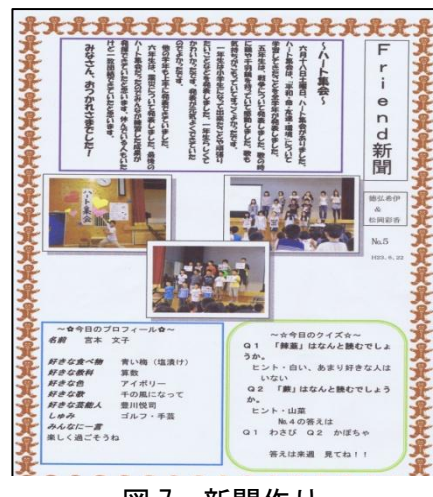 Friend新聞
徳弘希伊
&
松岡彩香
No.5
H23.6.22
～ハート集会～
六月十八日土曜日、ハート集会がありました。
ハート集会は、「平和・命・友達・環境」について
学習してきたことを全学年が発表しました。
五年生は、戦争について発表しました。歌の時
に鳩や千羽鶴を持っていて感動しました。歌も
気持ちがこもっていてすごくよかったです。
一年生は小学生になって出来たことや頑張り
たいことなどを発表しました。一年生らしくて
かわいかったです。発表が元気よくできていた
のでよかったです。
他の学年も上手に発表できていました。
六年生は、震災について発表しました。最後の
ハート集会だったのでみんなが練習した成果が
発揮できていたと思います。休んでいる人もいた
けど一致団結できていたと思います。
みなさん、おつかれさまでした！
ハート集会
～✿今日のプロフィール✿～
名前 宮本 文子
好きな食べ物 青い梅（塩漬け）
好きな教科 算数
好きな色 アイボリー
好きな歌 千の風になって
好きな芸能人 豊川悦司
しゅみ ゴルフ・手芸
みんなに一言
楽しく過ごそうね
～☆今日のクイズ☆～
Ｑ１ 「辣韮」はなんと読むでしょ
うか。
ヒント・白い、あまり好きな人は
いない
Ｑ２ 「蕨」はなんと読むでしょう
か。
ヒント・山菜
№４の答えは
Ｑ１ わさび Ｑ２ かぼちゃ
答えは来週 見てね！！
図 7 新聞作り